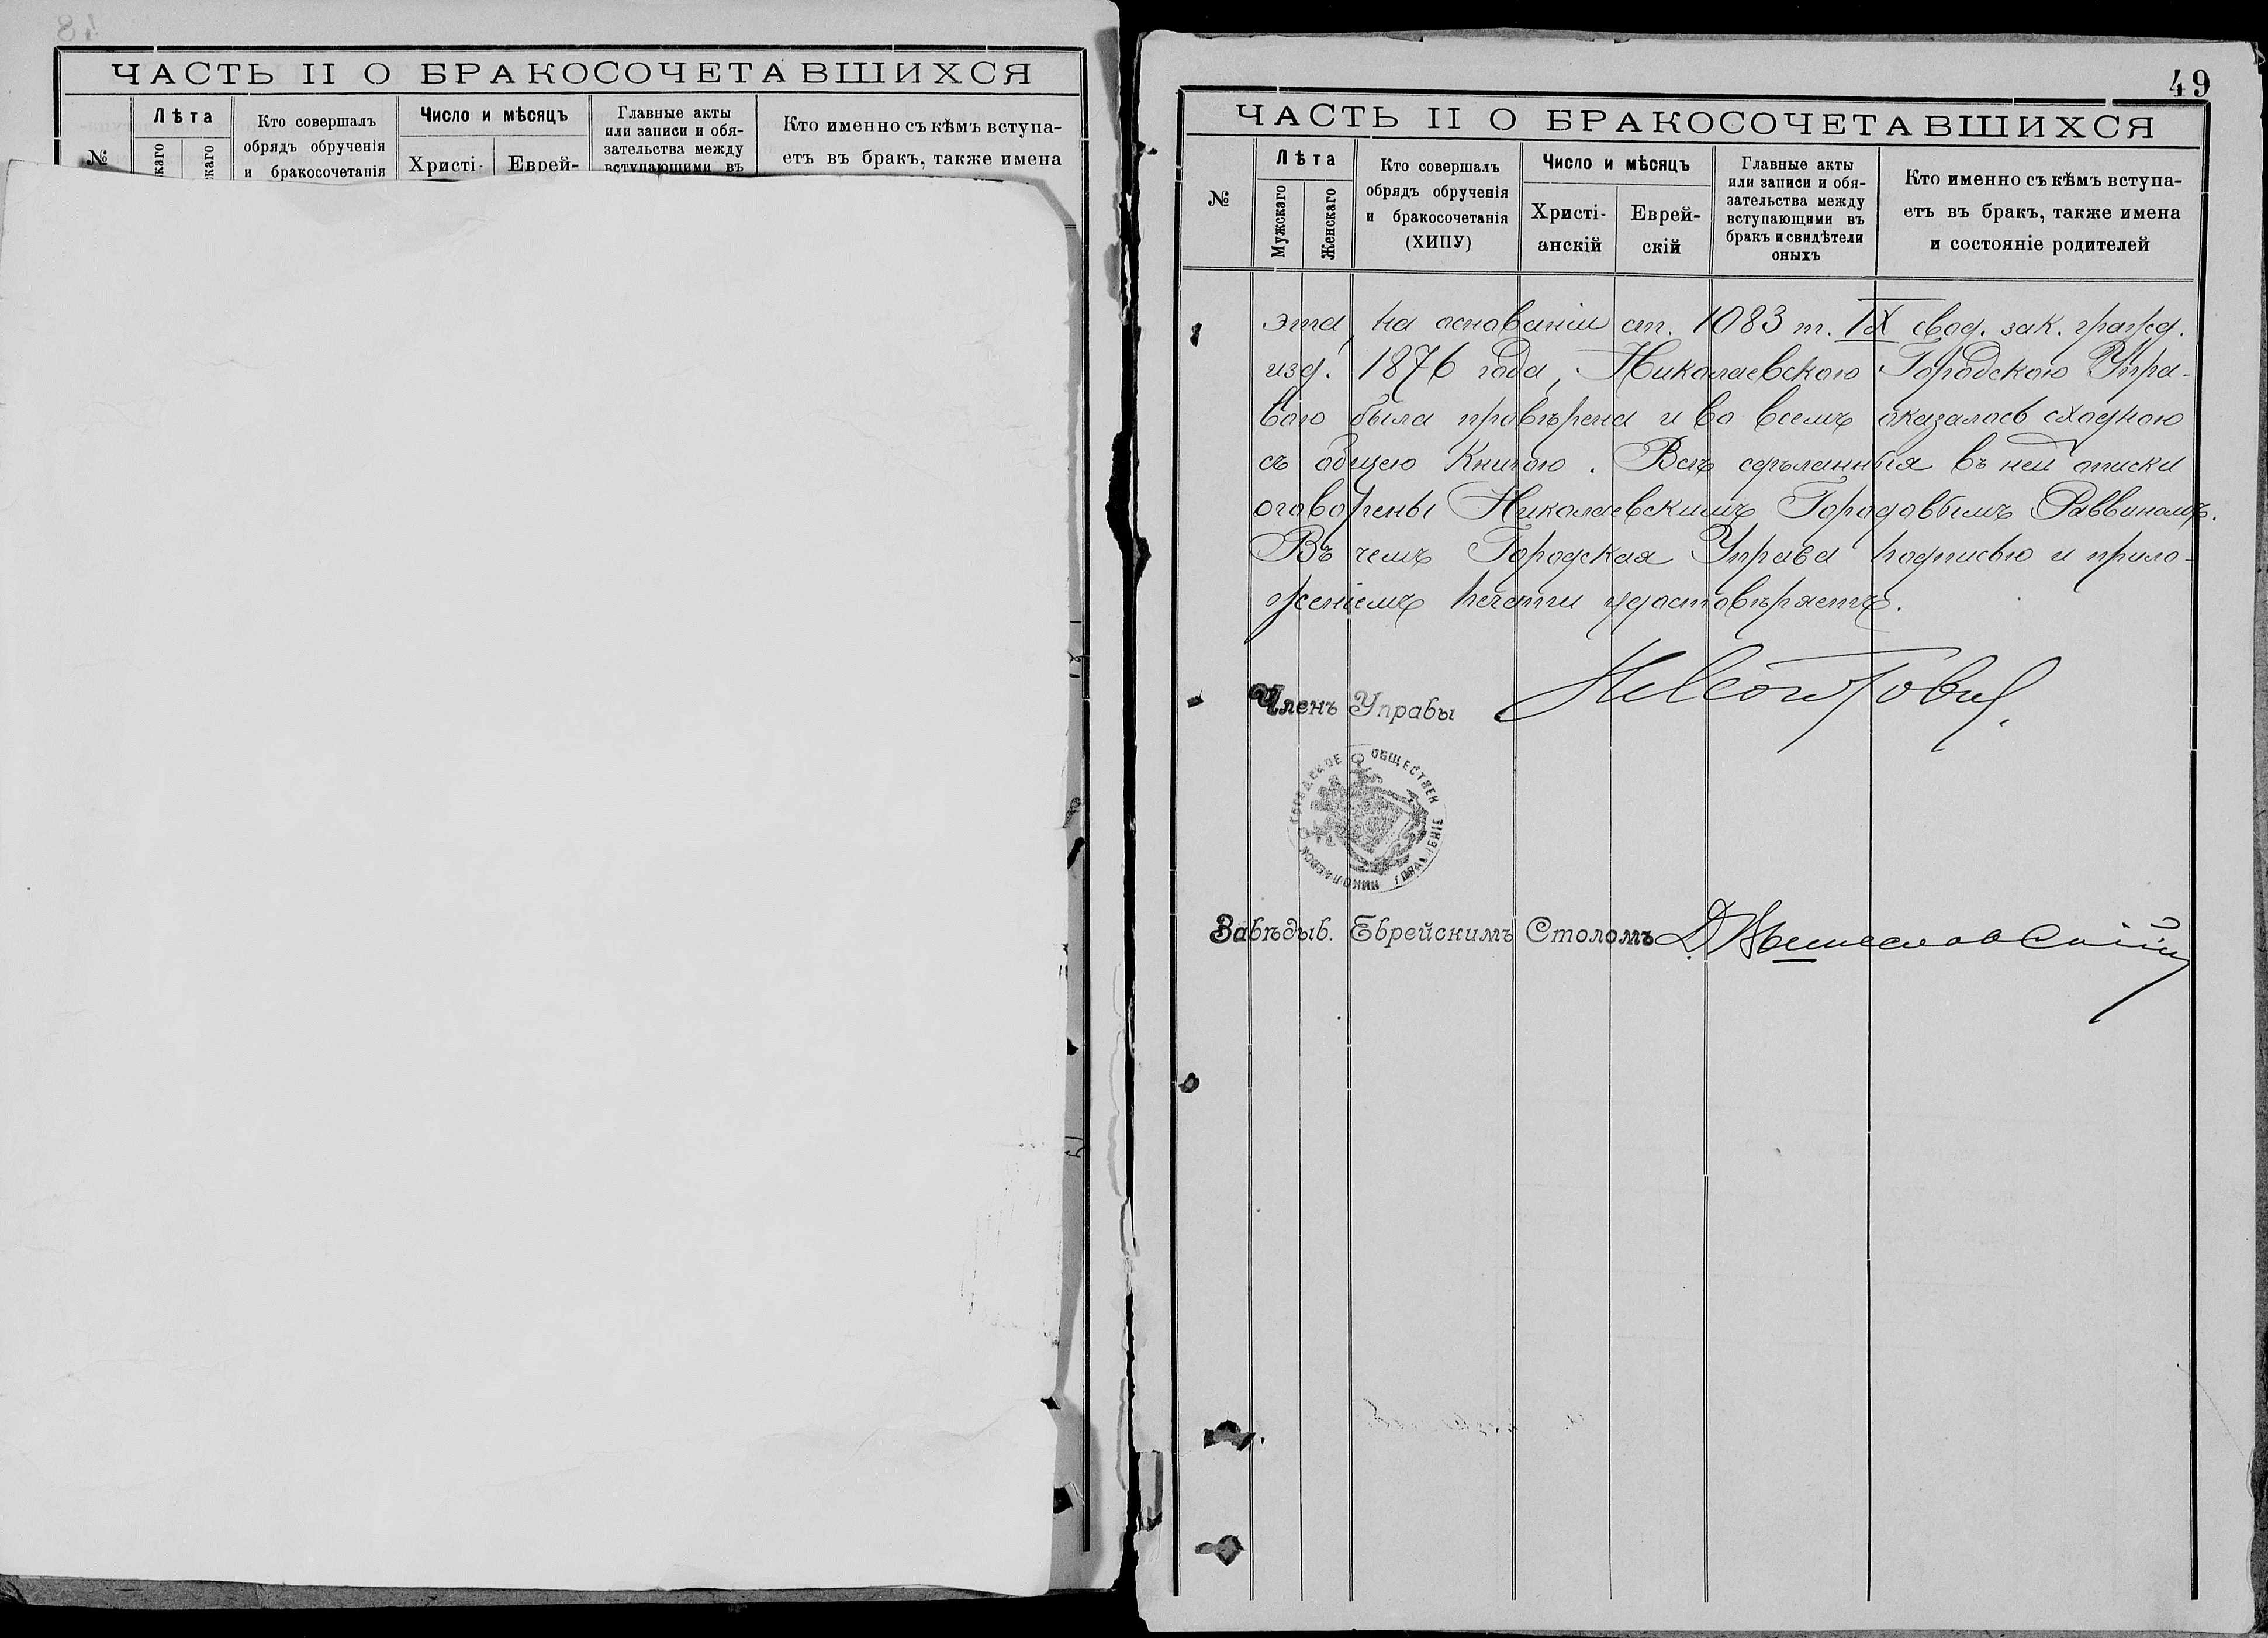 48
ЧАСТЬ II О БРАКОСОЧЕТАВШИХСЯ
№
Лѣта
каго
каго
Кто совершалъ
обрядъ обрученія
и бракосочетанія
Число и мѣсяцъ
Христі-
Еврей-
Главные акты
или записи и обя-
зательства между
вступающими въ
Кто именно съ кѣмъ вступа-
етъ въ бракъ, также имена
49
ЧАСТЬ II О БРАКОСОЧЕТАВШИХСЯ
№
Лѣта
Мужскаго
Женскаго
Кто совершалъ
обрядъ обрученія
и бракосочетанія
(ХИПУ)
Число и мѣсяцъ
Христі-
анскій
Еврей-
скій
Главные акты
или записи и обя-
зательства между
вступающими въ
бракъ и свидѣтели
оныхъ
Кто именно съ кѣмъ вступа-
етъ въ бракъ, также имена
и состояніе родителей
эта, на основаніи ст. 1083 т. IX свод. зак. гражд.
изд. 1876 года, Николаевскою Городскою Упра-
вою была провѣрена и во всемъ оказалась сходною
съ общею Книгою. Всѣ сдѣланныя въ ней описки
оговорены Николаевскимъ Городовымъ Раввиномъ.
Въ чемъ Городская Управа подписью и прило-
женіемъ печати удостовѣряетъ.
Членъ Управы
НИКОЛАЕВСК ГОРОДСКОЕ ОБЩЕСТВЕН УПРАВЛЕНІЕ
Завѣдыв. Еврейскимъ Столомъ